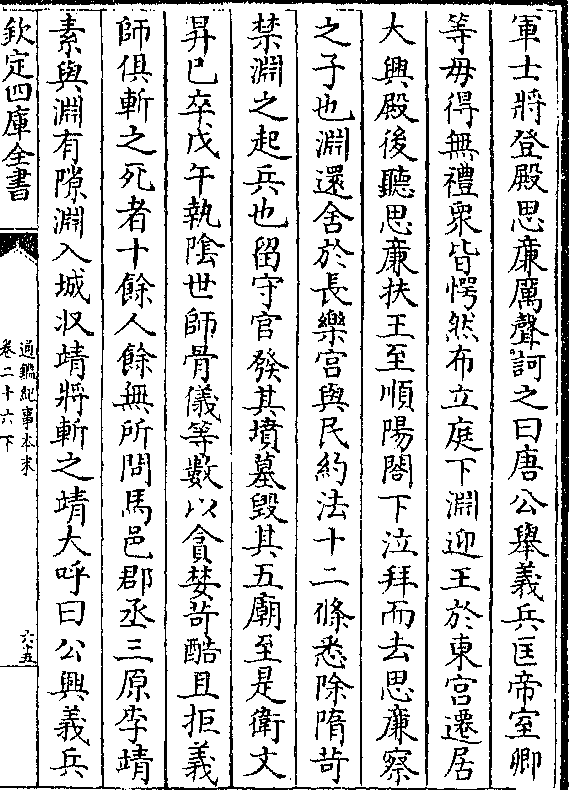 軍士將登殿思廉厲聲訶之曰唐公舉義兵匡帝室卿
等毋得無禮衆皆愕然布立庭下淵迎王於東宮遷居
大興殿後聽思廉扶王至順陽閤下泣拜而去思廉察
之子也淵還舍於長樂宮與民約法十二條悉除隋苛
禁淵之起兵也留守官發其墳墓毀其五廟至是衛文
昇已卒戊午執陰世師骨儀等數以貪婪苛酷且拒義
師俱斬之死者十餘人餘無所問馬邑郡丞三原李靖
素與淵有隙淵入城収靖將斬之靖大呼曰公興義兵
欽定四庫全書
通鑑紀事本末
卷二十六下
六十五